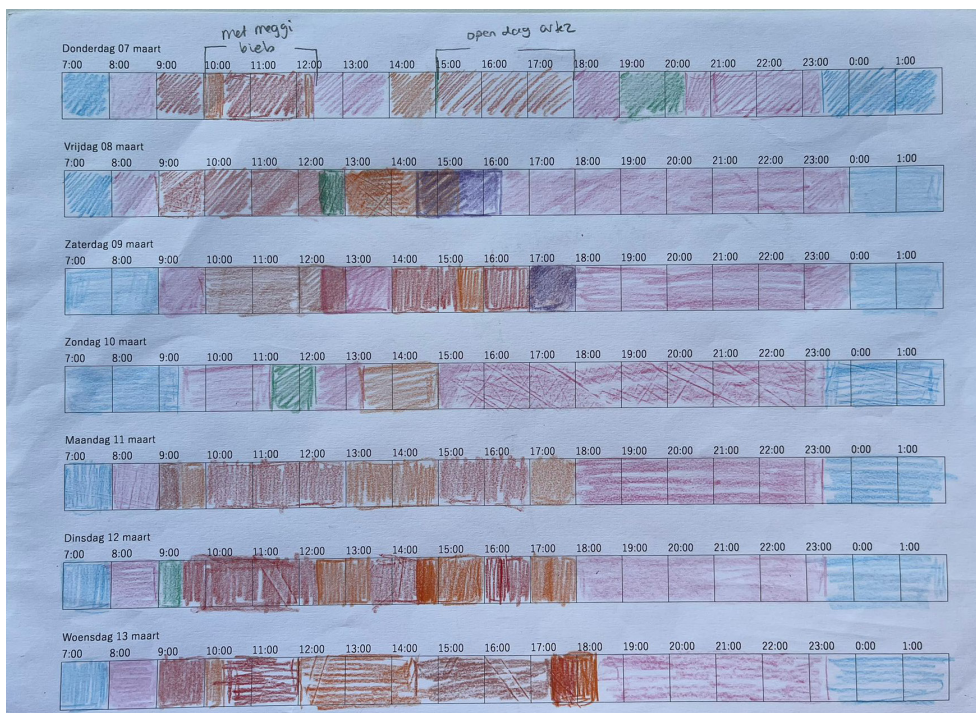 met meggi
bieb
open dag arkz
Donderdag 07 maart
7:00 8:00 9:00 10:00 11:00 12:00 13:00 14:00 15:00 16:00 17:00 18:00 19:00 20:00 21:00 22:00 23:00 0:00 1:00
Vrijdag 08 maart
7:00 8:00 9:00 10:00 11:00 12:00 13:00 14:00 15:00 16:00 17:00 18:00 19:00 20:00 21:00 22:00 23:00 0:00 1:00
Zaterdag 09 maart
7:00 8:00 9:00 10:00 11:00 12:00 13:00 14:00 15:00 16:00 17:00 18:00 19:00 20:00 21:00 22:00 23:00 0:00 1:00
Zondag 10 maart
7:00 8:00 9:00 10:00 11:00 12:00 13:00 14:00 15:00 16:00 17:00 18:00 19:00 20:00 21:00 22:00 23:00 0:00 1:00
Maandag 11 maart
7:00 8:00 9:00 10:00 11:00 12:00 13:00 14:00 15:00 16:00 17:00 18:00 19:00 20:00 21:00 22:00 23:00 0:00 1:00
Dinsdag 12 maart
7:00 8:00 9:00 10:00 11:00 12:00 13:00 14:00 15:00 16:00 17:00 18:00 19:00 20:00 21:00 22:00 23:00 0:00 1:00
Woensdag 13 maart
7:00 8:00 9:00 10:00 11:00 12:00 13:00 14:00 15:00 16:00 17:00 18:00 19:00 20:00 21:00 22:00 23:00 0:00 1:00